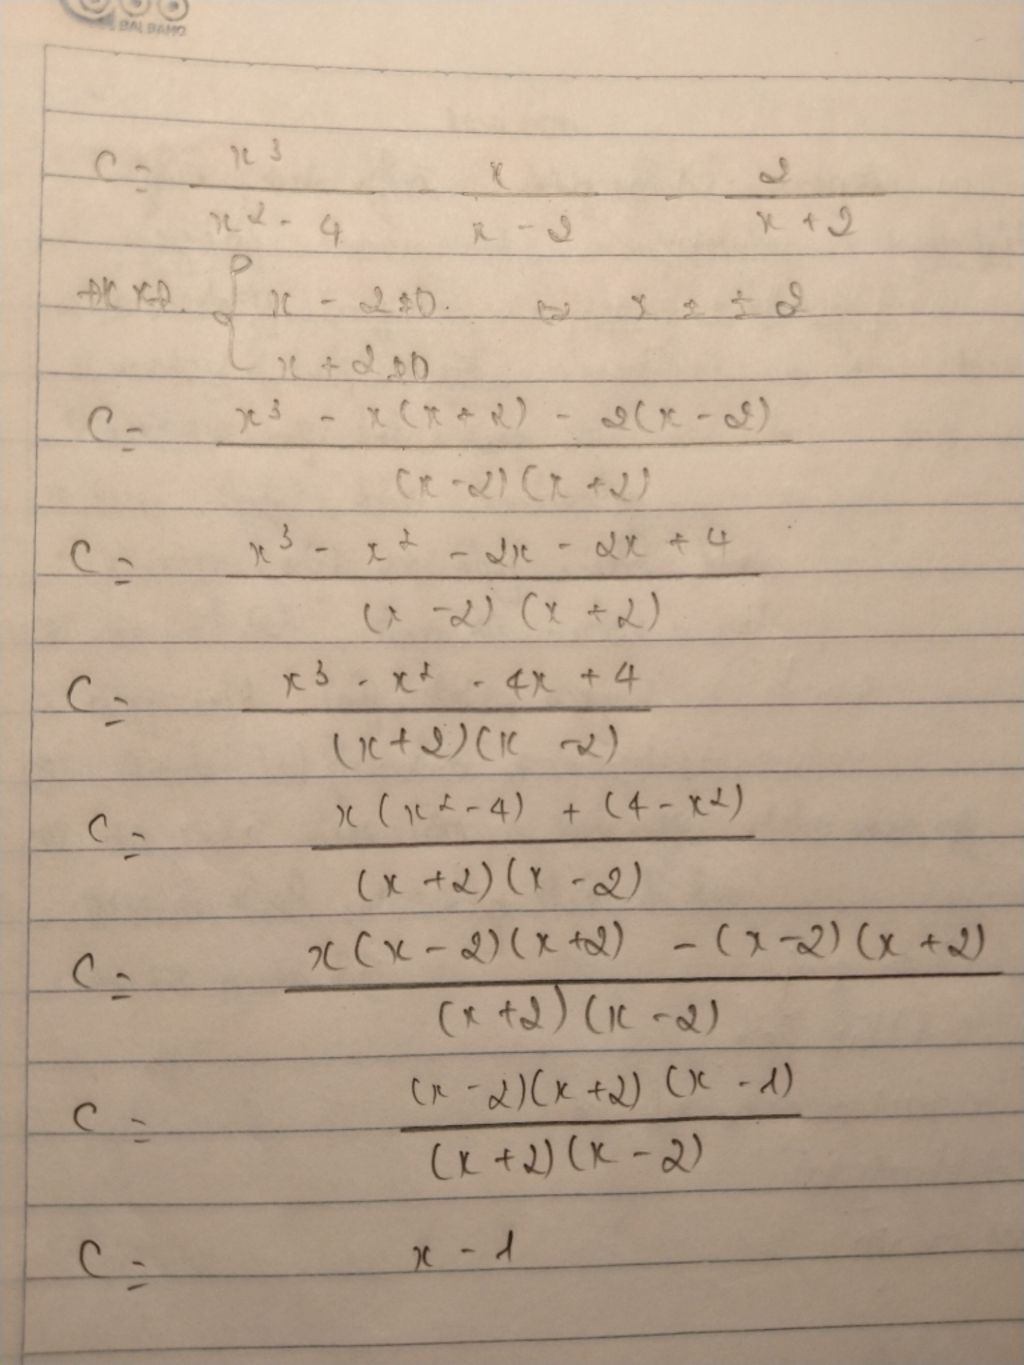 BAI BAMO
C = x³/(x² - 4) - x/(x - 2) - 2/(x + 2)
ĐKXĐ. { x - 2 ≠ 0. ⇔ x ≠ ± 2
x + 2 ≠ 0
C = (x³ - x(x + 2) - 2(x - 2))/((x - 2)(x + 2))
C = (x³ - x² - 2x - 2x + 4)/((x - 2)(x + 2))
C = (x³ - x² - 4x + 4)/((x + 2)(x - 2))
C = (x(x² - 4) + (4 - x²))/((x + 2)(x - 2))
C = (x(x - 2)(x + 2) - (x - 2)(x + 2))/((x + 2)(x - 2))
C = ((x - 2)(x + 2)(x - 1))/((x + 2)(x - 2))
C = x - 1